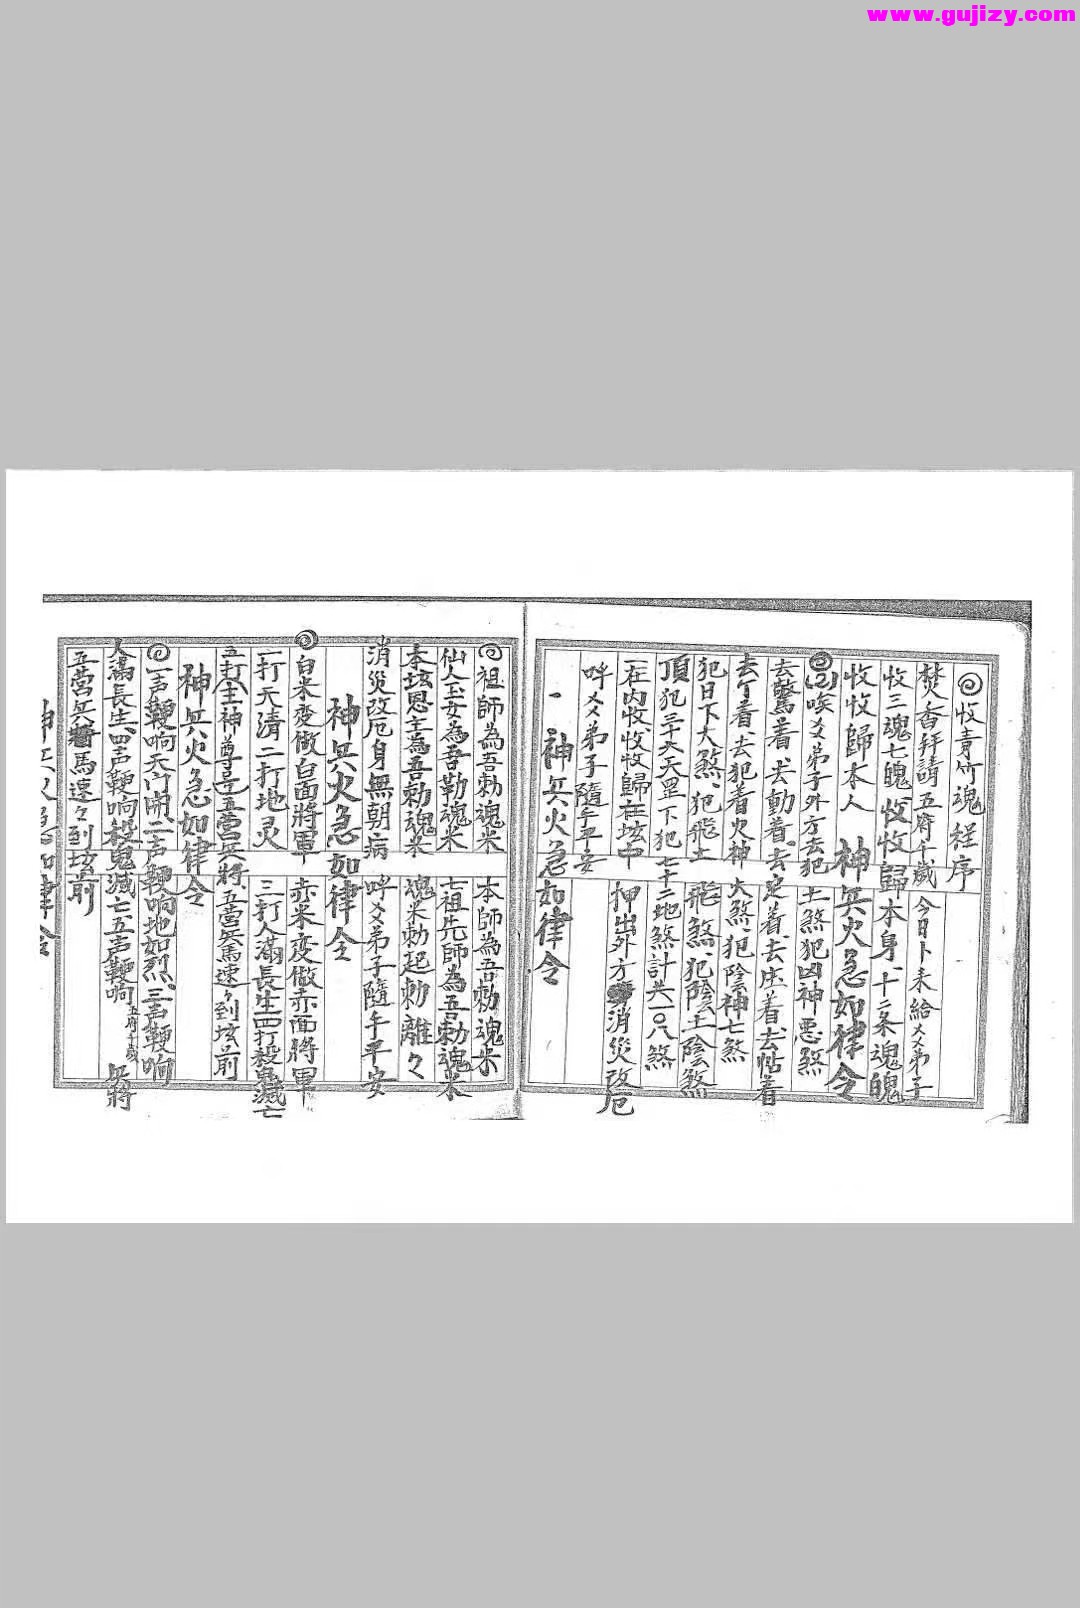 www.gujizy.com
收青竹魂程序
焚香拜請五府千歲今日卜未給乂乂弟子
收三魂七魄收收歸本身、十二条魂魄
收收歸本人 神兵火急如律令
唉乂乂弟子外方去犯土煞犯凶神悪煞
去驚着、去動着、去 着、去庄着、去帖着
去 着、去犯着火神 火煞、犯陰神七煞
犯日下大煞、犯飛土 飛煞、犯陰土陰煞
頂犯三十六天罡下犯七十二地煞計共一〇八煞
在内收收歸在垓中 押出外方 消災改厄
吽乂乂弟子隨年平安
神兵火急如律令
祖師為吾勅魂米 本師為吾勅魂米
仙人玉女為吾勒魂米 七祖先師為吾勅魂米
本垓恩主為吾勅魂米 魂米勅起勅離々
消災改厄身無朝病 吽乂乂弟子隨年平安
神兵火急如律令
白米变做白面將軍 赤米变做赤面將軍
一打天清二打地灵 三打人滿長生四打殺鬼滅亡
五打 主神尊 五营兵將、五营兵馬速々到垓前
神兵火急如律令
一声鞭响天门開、二声鞭响地如烈、三声鞭响
人滿長生、四声鞭响殺鬼滅亡五声鞭响五府千歲 兵將
五营兵將馬速々到垓前
神兵火急如律令